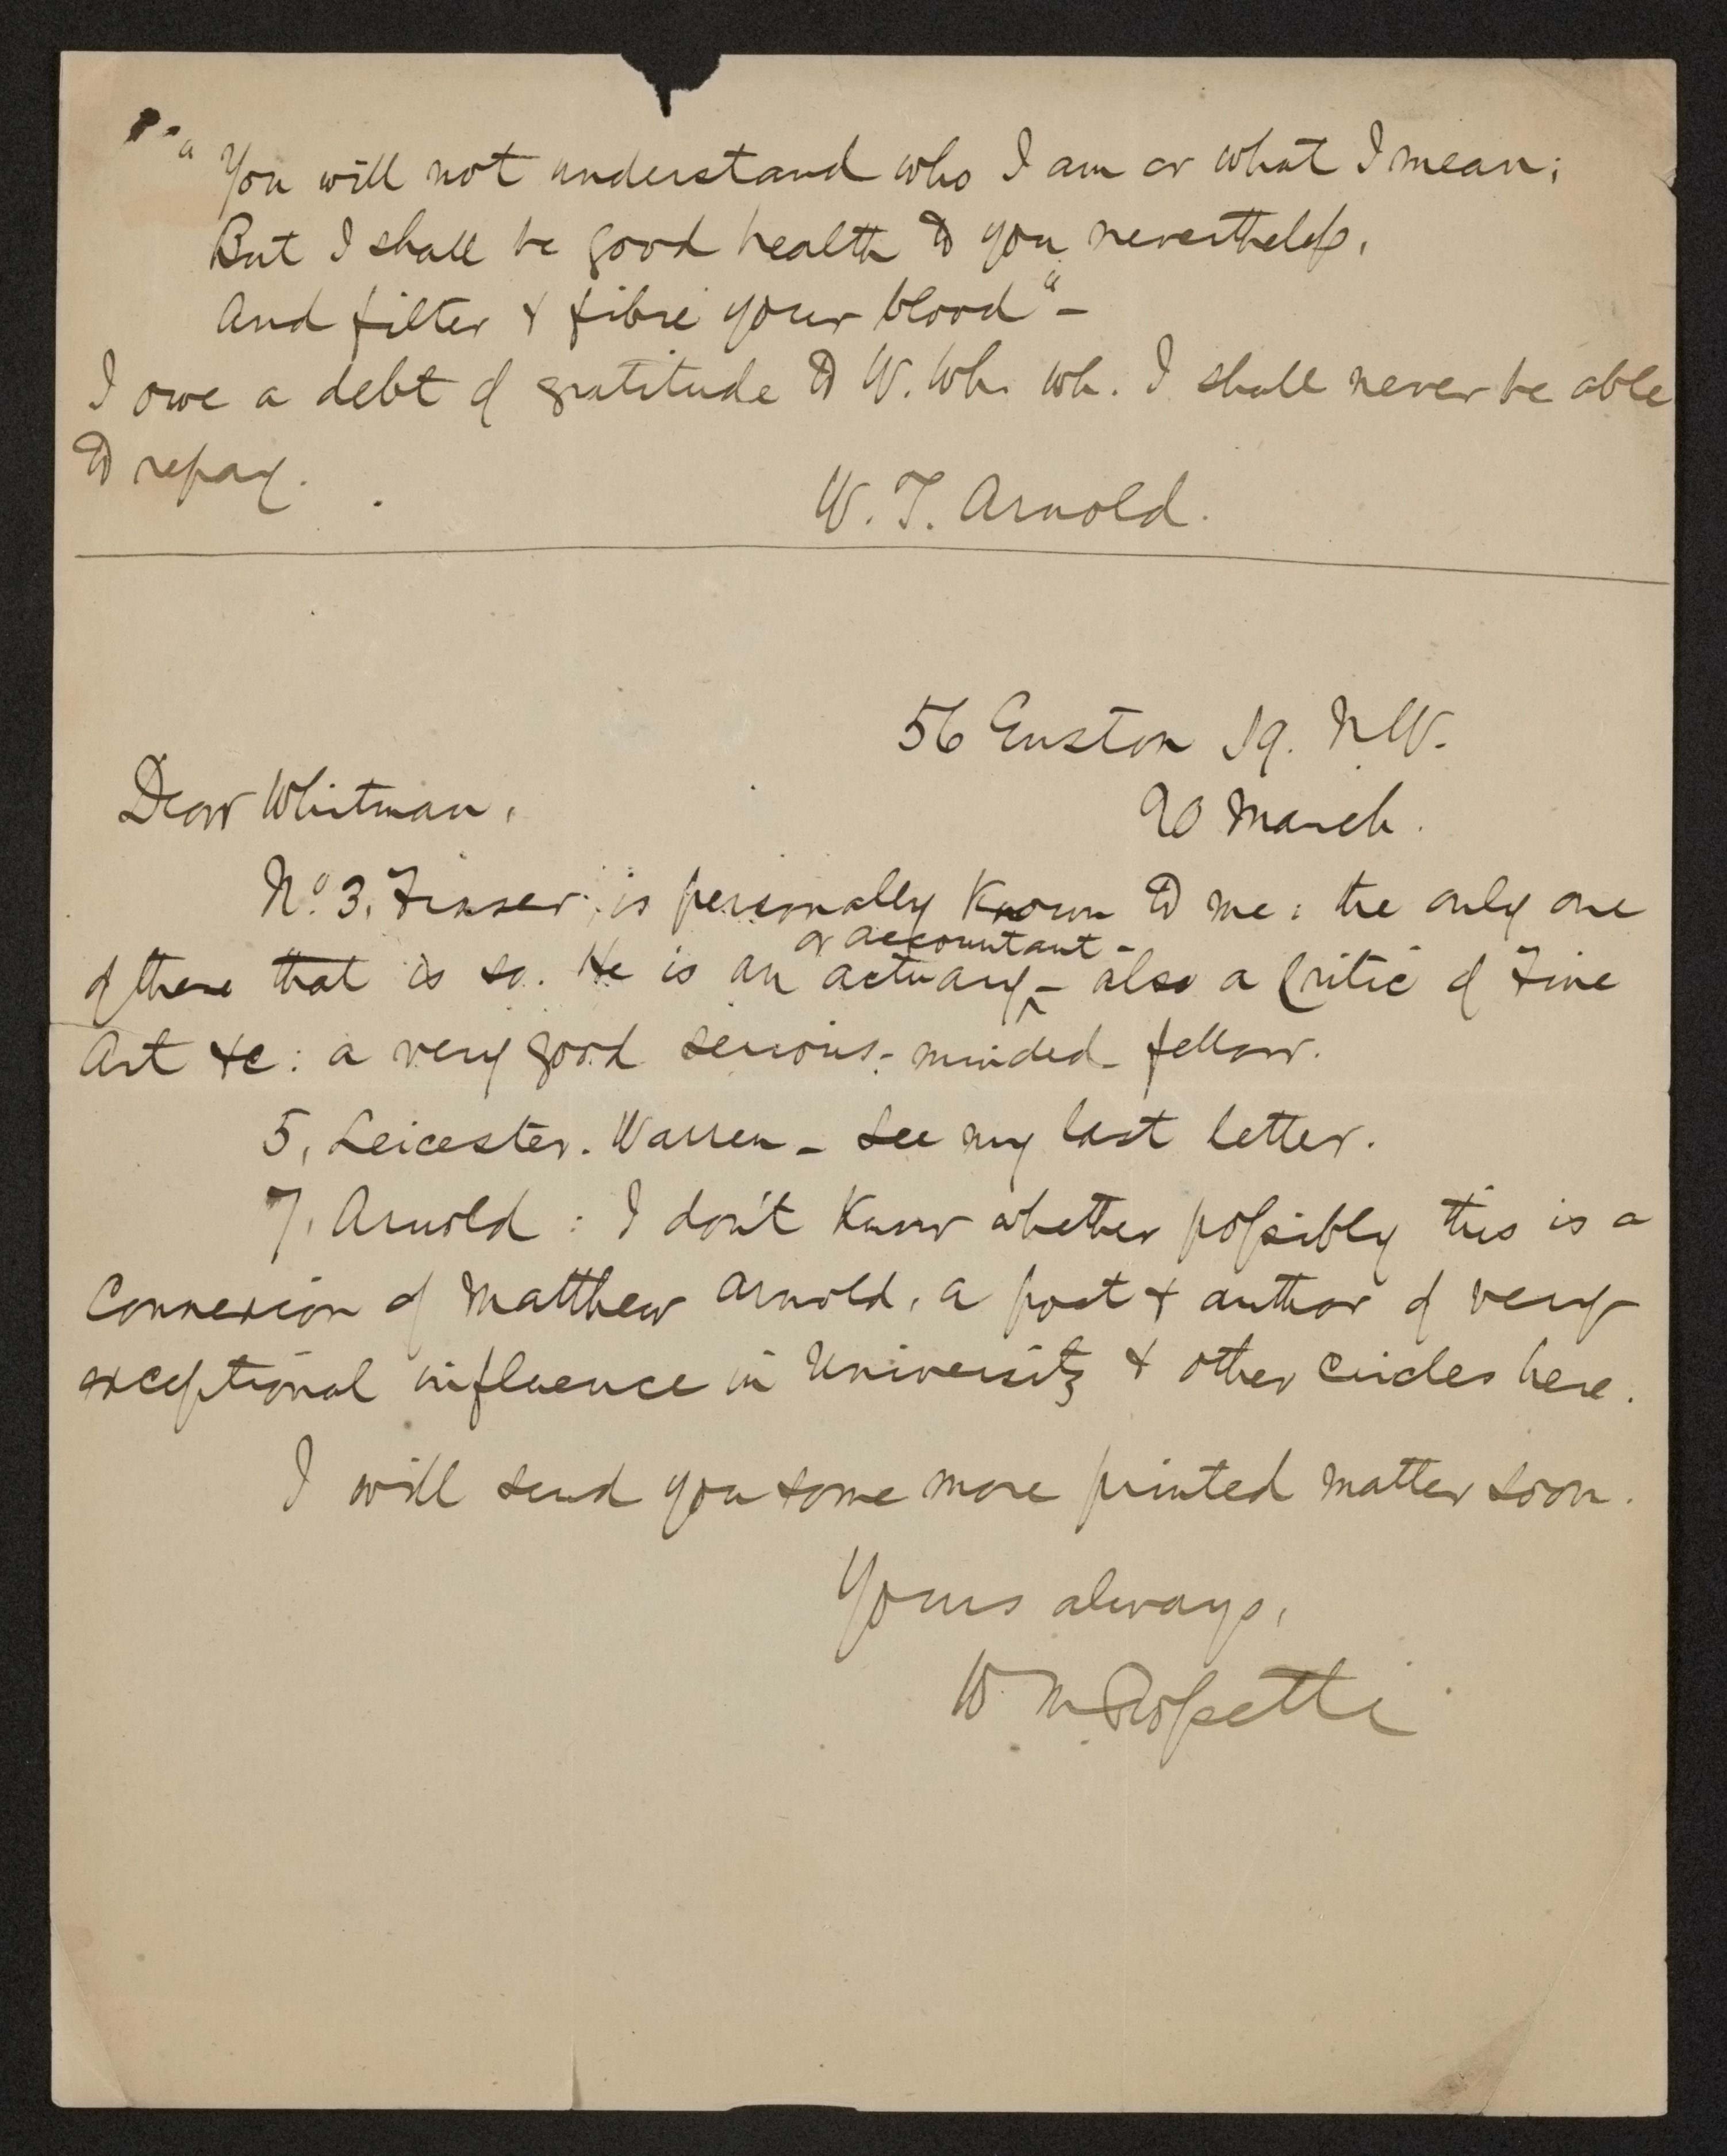 "You will not understand who I am or what I mean;
But I shall be good health to you nevertheless,
And filter & fibre your blood" –
I owe a debt of gratitude to W. Wh. wh. I shall never be able
to repay.
W. T. Arnold.
56 Euston Sq. N.W.
20 March.
Dear Whitman,
No. 3, Fraser, is personally known to me: the only one
of these that is so. He is an actuary – also a Critic of Fine
or accountant –
Art &c: a very good serious-minded fellow.
5, Leicester-Warren – see my last letter.
7, Arnold: I don't know whether possibly this is a
Connexion of Matthew Arnold, a poet & author of very
exceptional influence in University & other circles here.
I will send you some more printed matter soon.
Yours always,
W M Rossetti